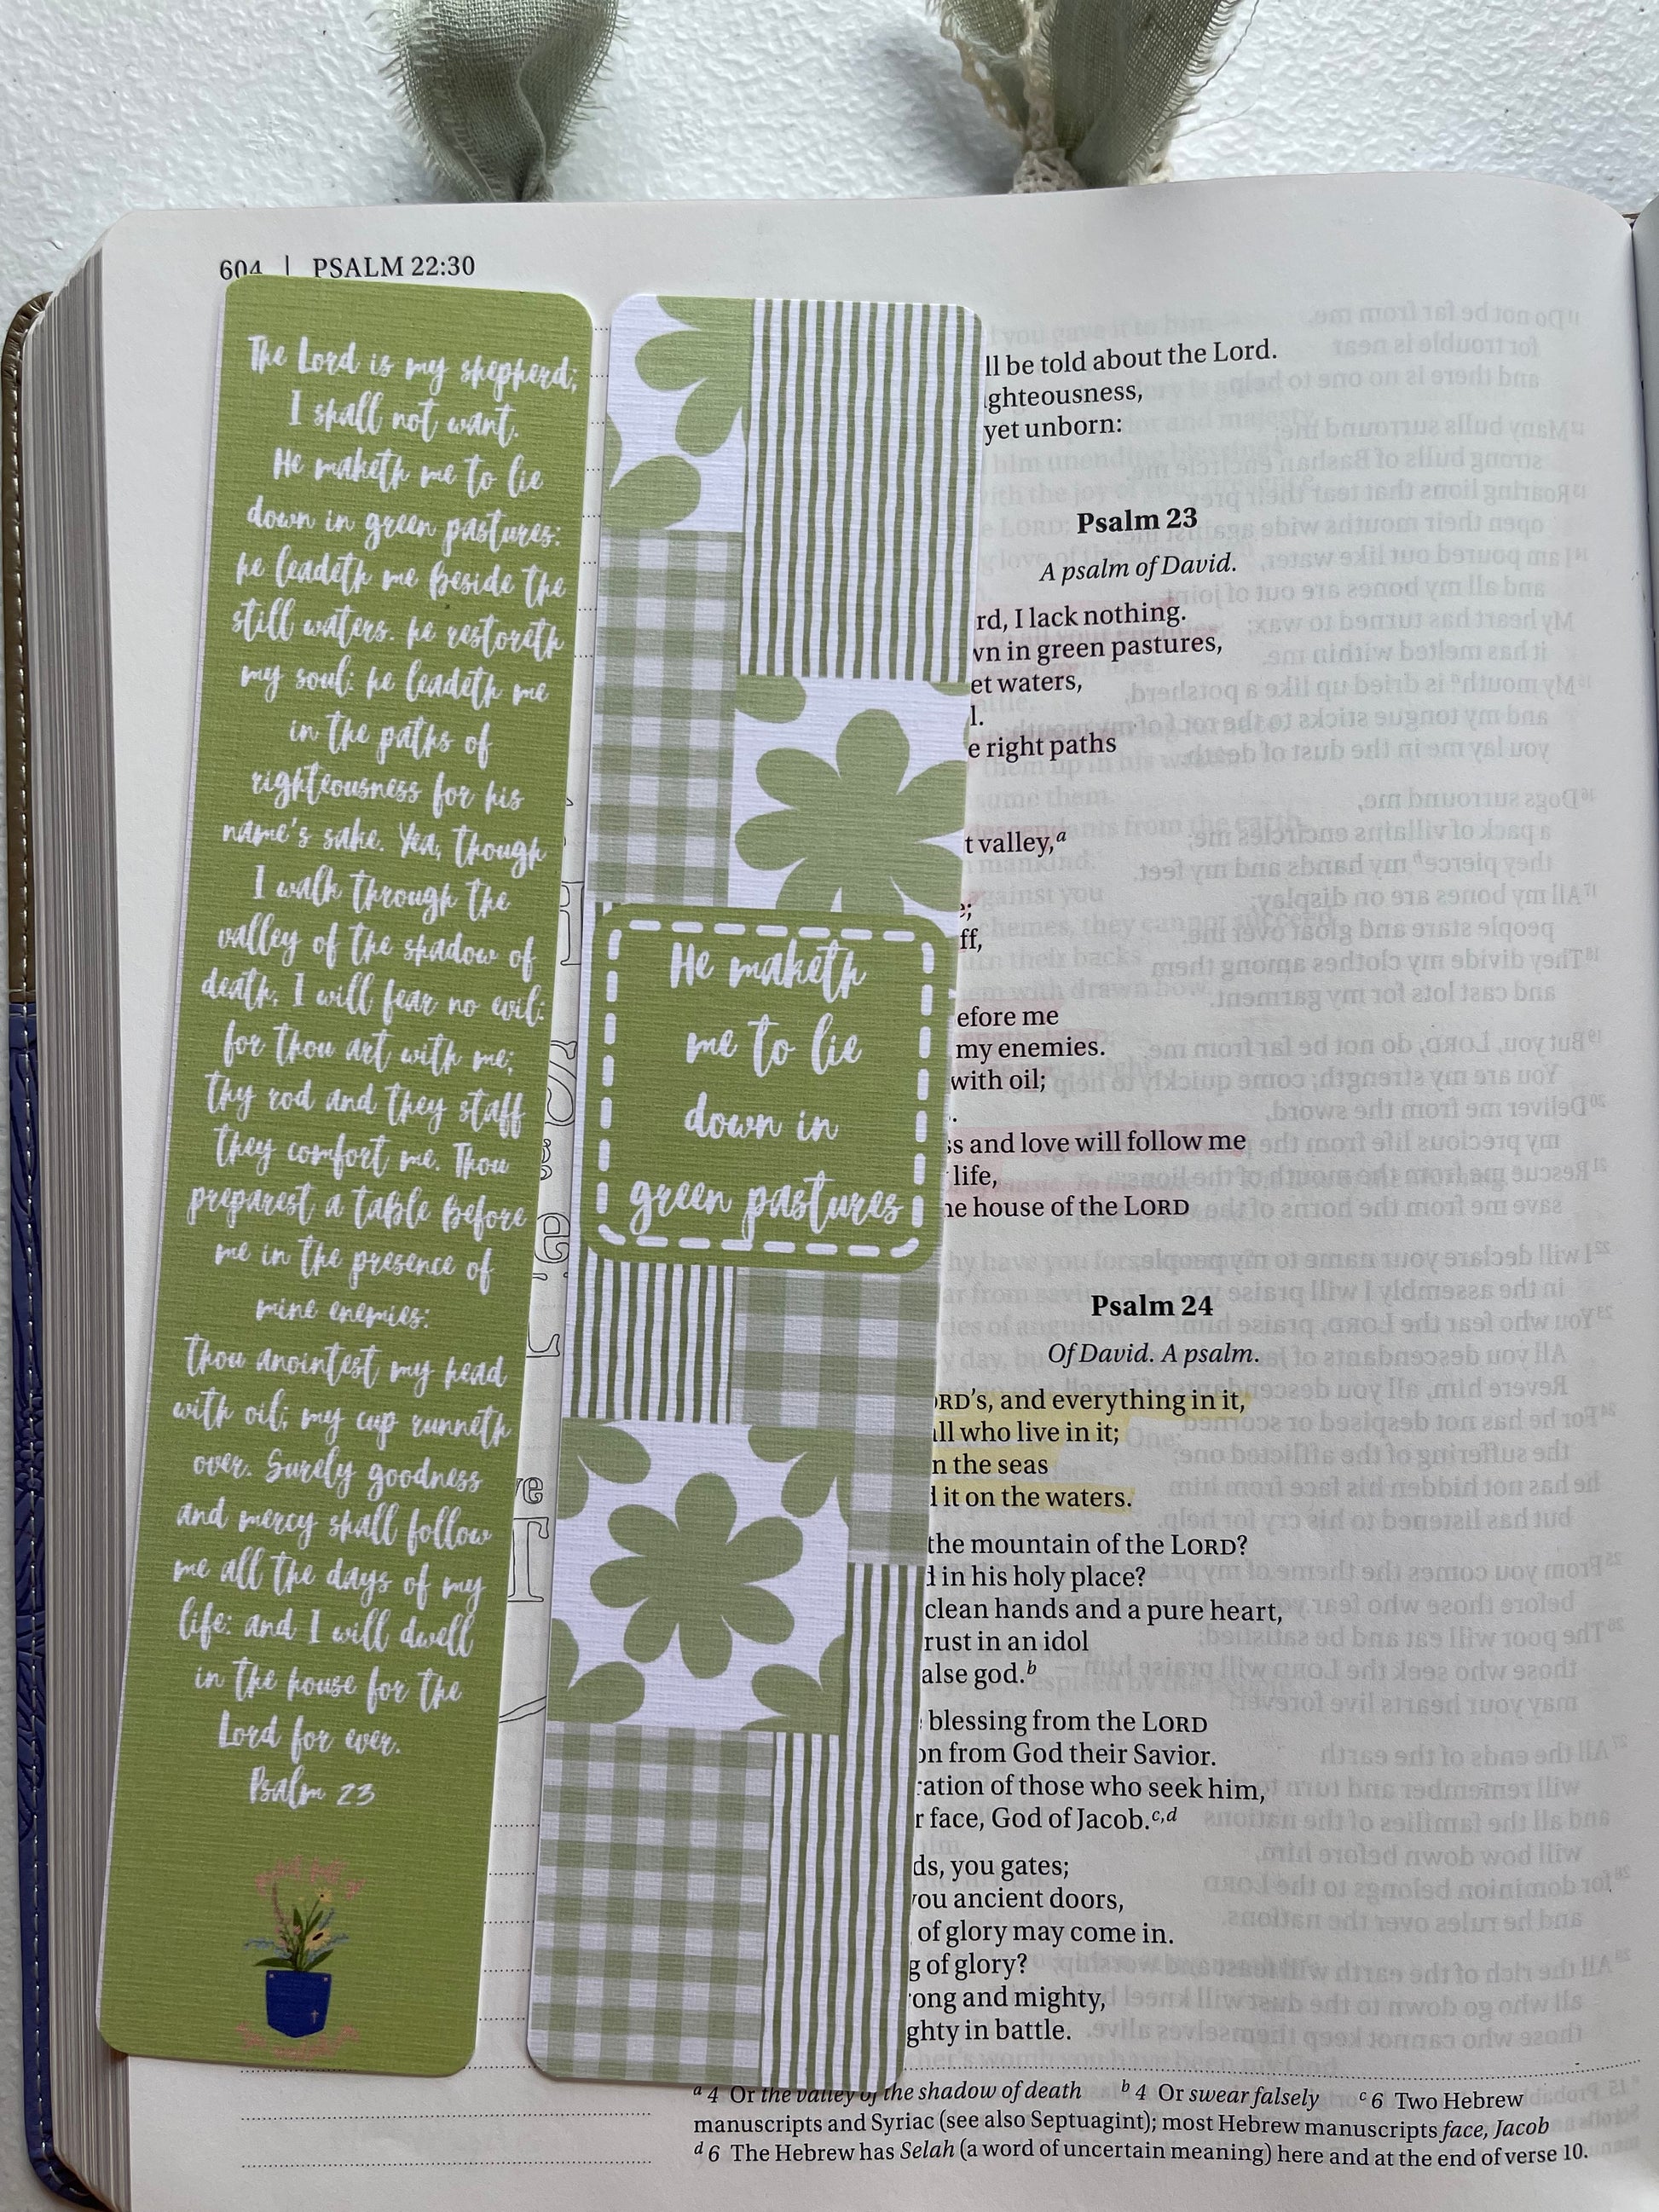 604 | PSALM 22:30
The Lord is my shepherd;
I shall not want.
He maketh me to lie
down in green pastures:
he leadeth me beside the
still waters. he restoreth
my soul: he leadeth me
in the paths of
righteousness for his
name's sake. Yea, though
I walk through the
valley of the shadow of
death, I will fear no evil:
for thou art with me;
thy rod and they staff
they comfort me. Thou
preparest a table before
me in the presence of
mine enemies:
thou anointest my head
with oil; my cup runneth
over. Surely goodness
and mercy shall follow
me all the days of my
life: and I will dwell
in the house for the
Lord for ever.
Psalm 23
He maketh
me to lie
down in
green pastures
ll be told about the Lord.
ghteousness,
yet unborn:
Psalm 23
A psalm of David.
rd, I lack nothing.
wn in green pastures,
et waters,
l.
e right paths
t valley,a
e;
ff,
efore me
my enemies.
with oil;
.
ss and love will follow me
life,
he house of the LORD
Psalm 24
Of David. A psalm.
ORD'S, and everything in it,
all who live in it;
n the seas
d it on the waters.
the mountain of the LORD?
d in his holy place?
clean hands and a pure heart,
rust in an idol
alse god.b
blessing from the LORD
on from God their Savior.
ration of those who seek him,
r face, God of Jacob.c,d
ds, you gates;
you ancient doors,
of glory may come in.
g of glory?
ong and mighty,
ghty in battle.
a 4 Or the valley of the shadow of death b 4 Or swear falsely c 6 Two Hebrew
manuscripts and Syriac (see also Septuagint); most Hebrew manuscripts face, Jacob
d 6 The Hebrew has Selah (a word of uncertain meaning) here and at the end of verse 10.